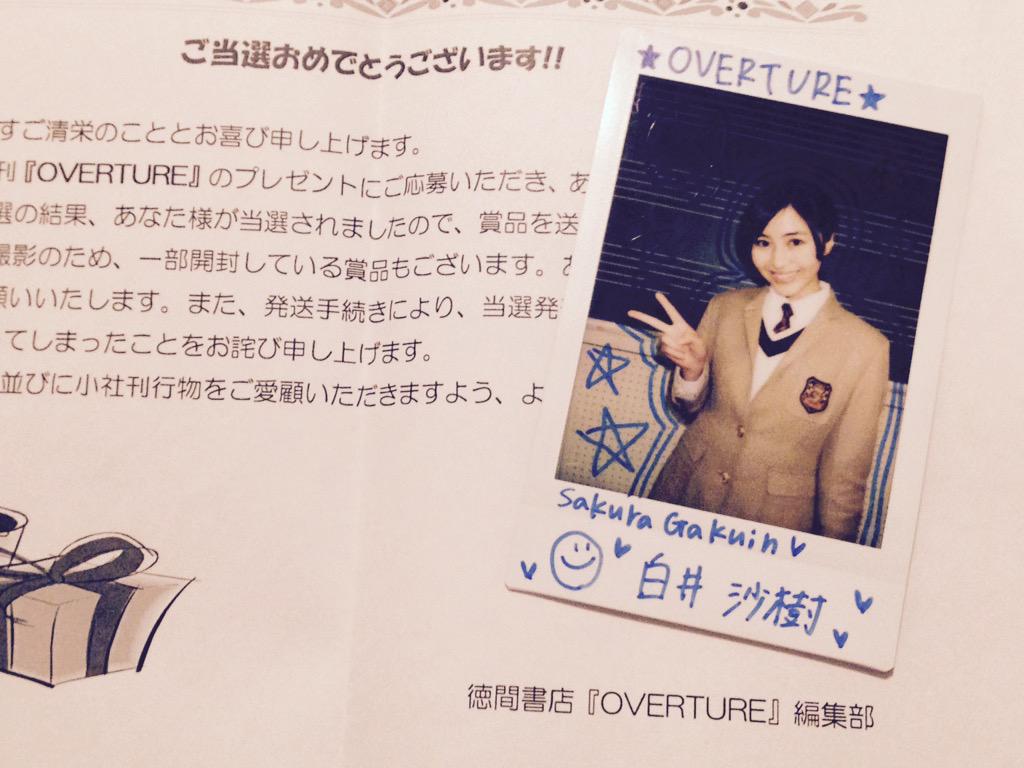 ご当選おめでとうございます!!
すご清栄のこととお喜び申し上げます。
刊『OVERTURE』のプレゼントにご応募いただき、あ
選の結果、あなた様が当選されましたので、賞品を送
撮影のため、一部開封している賞品もございます。
願いいたします。また、発送手続きにより、当選発
てしまったことをお詫び申し上げます。
並びに小社刊行物をご愛顧いただきますよう、よ
徳間書店『OVERTURE』編集部
★OVERTURE★
Sakura Gakuin♥
白井 沙樹